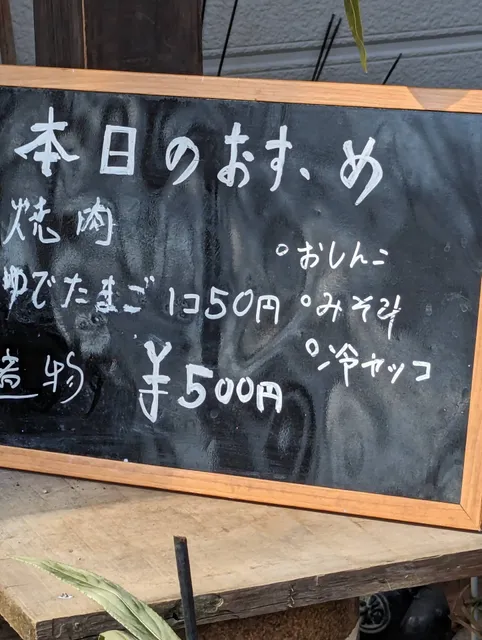 本日のおすゝめ
焼肉
ゆでたまご 1コ50円
煮物 ¥500円
○おしんこ
○みそ汁
○冷ヤッコ